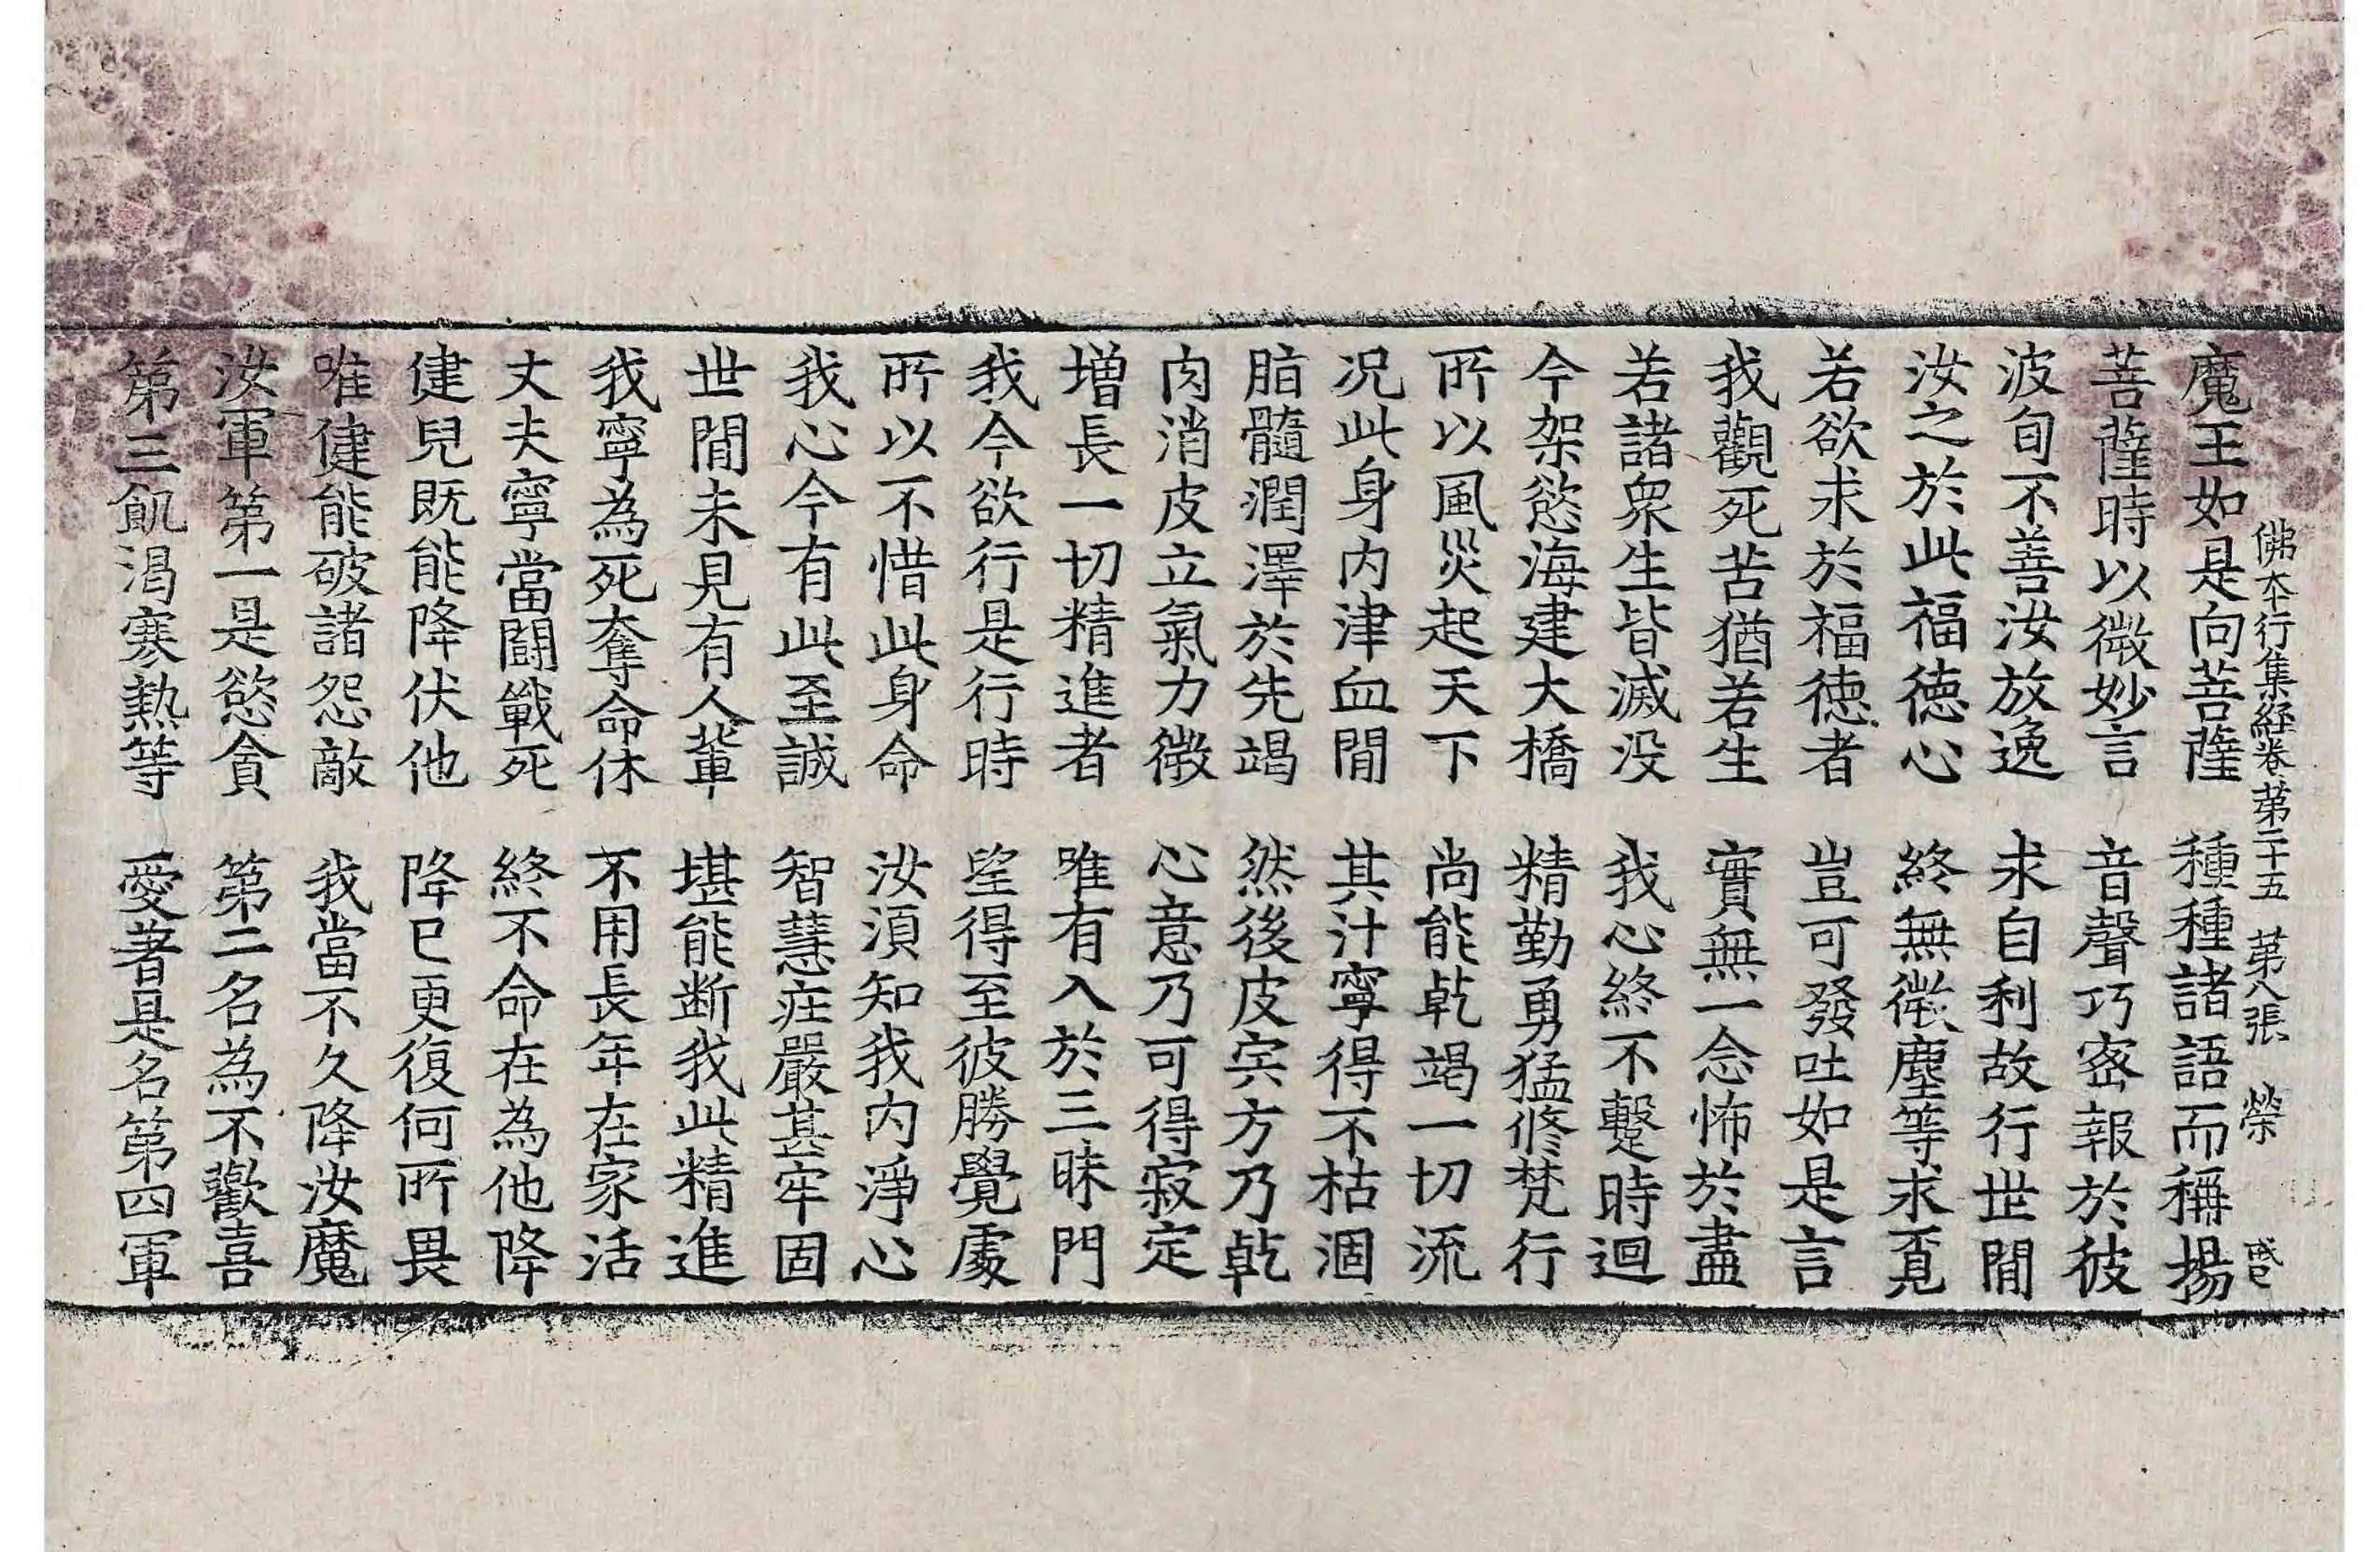 佛本行集經卷第二十五　第八張　榮
魔王如是向菩薩　種種諸語而稱揚
菩薩時以微妙言　音聲巧密報於彼
波旬不善汝放逸　求自利故行世間
汝之於此福德心　終無微塵等求覓
若欲求於福德者　豈可發吐如是言
我觀死苦猶若生　實無一念怖於盡
若諸衆生皆滅没　我心終不蹔時迴
今架慾海建大橋　精勤勇猛修梵行
所以風災起天下　尚能乾竭一切流
况此身内津血閒　其汁寧得不枯涸
脂髓潤澤於先竭　然後皮宍方乃乾
肉消皮立氣力微　心意乃可得寂定
增長一切精進者　唯有入於三昧門
我今欲行是行時　望得至彼勝覺處
所以不惜此身命　汝須知我内淨心
我心今有此至誠　智慧莊嚴甚牢固
世閒未見有人輩　堪能断我此精進
我寧為死奪命休　不用長年在家活
丈夫寧當鬪戰死　終不命在為他降
健兒既能降伏他　降已更復何所畏
唯健能破諸怨敵　我當不久降汝魔
汝軍第一是慾貪　第二名為不歡喜
第三飢渇寒熱等　愛著是名第四軍